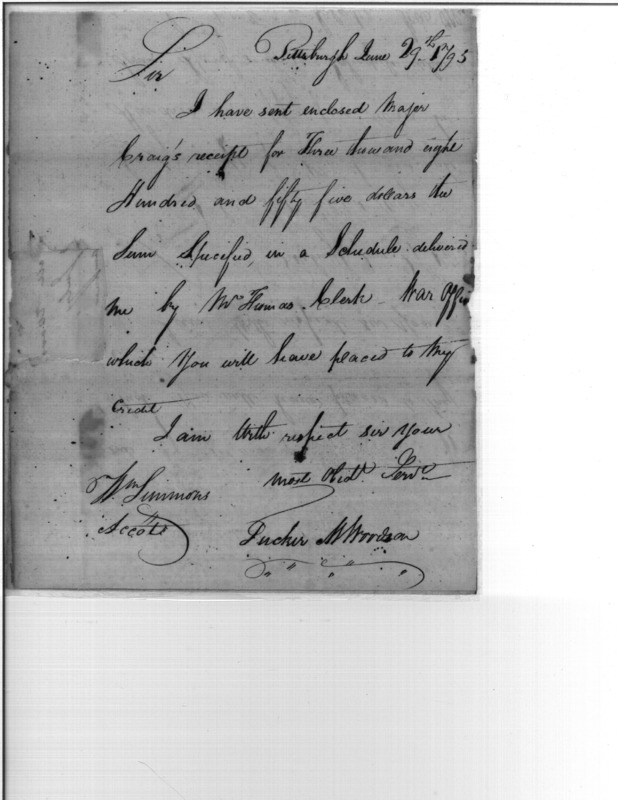 Pittsburgh June 29th 1795
Sir
I have sent enclosed Major
Craig's receipt for Three thousand eight
Hundred and fifty five dollars the
Sum Specified, in a Schedule delivered
me by Mr Thomas Clerk War Office
which You will have placed to my
Credit
I am With respect sir your
most Obdt Servt
Wm Simmons
Acctt
Tucker M Woodson